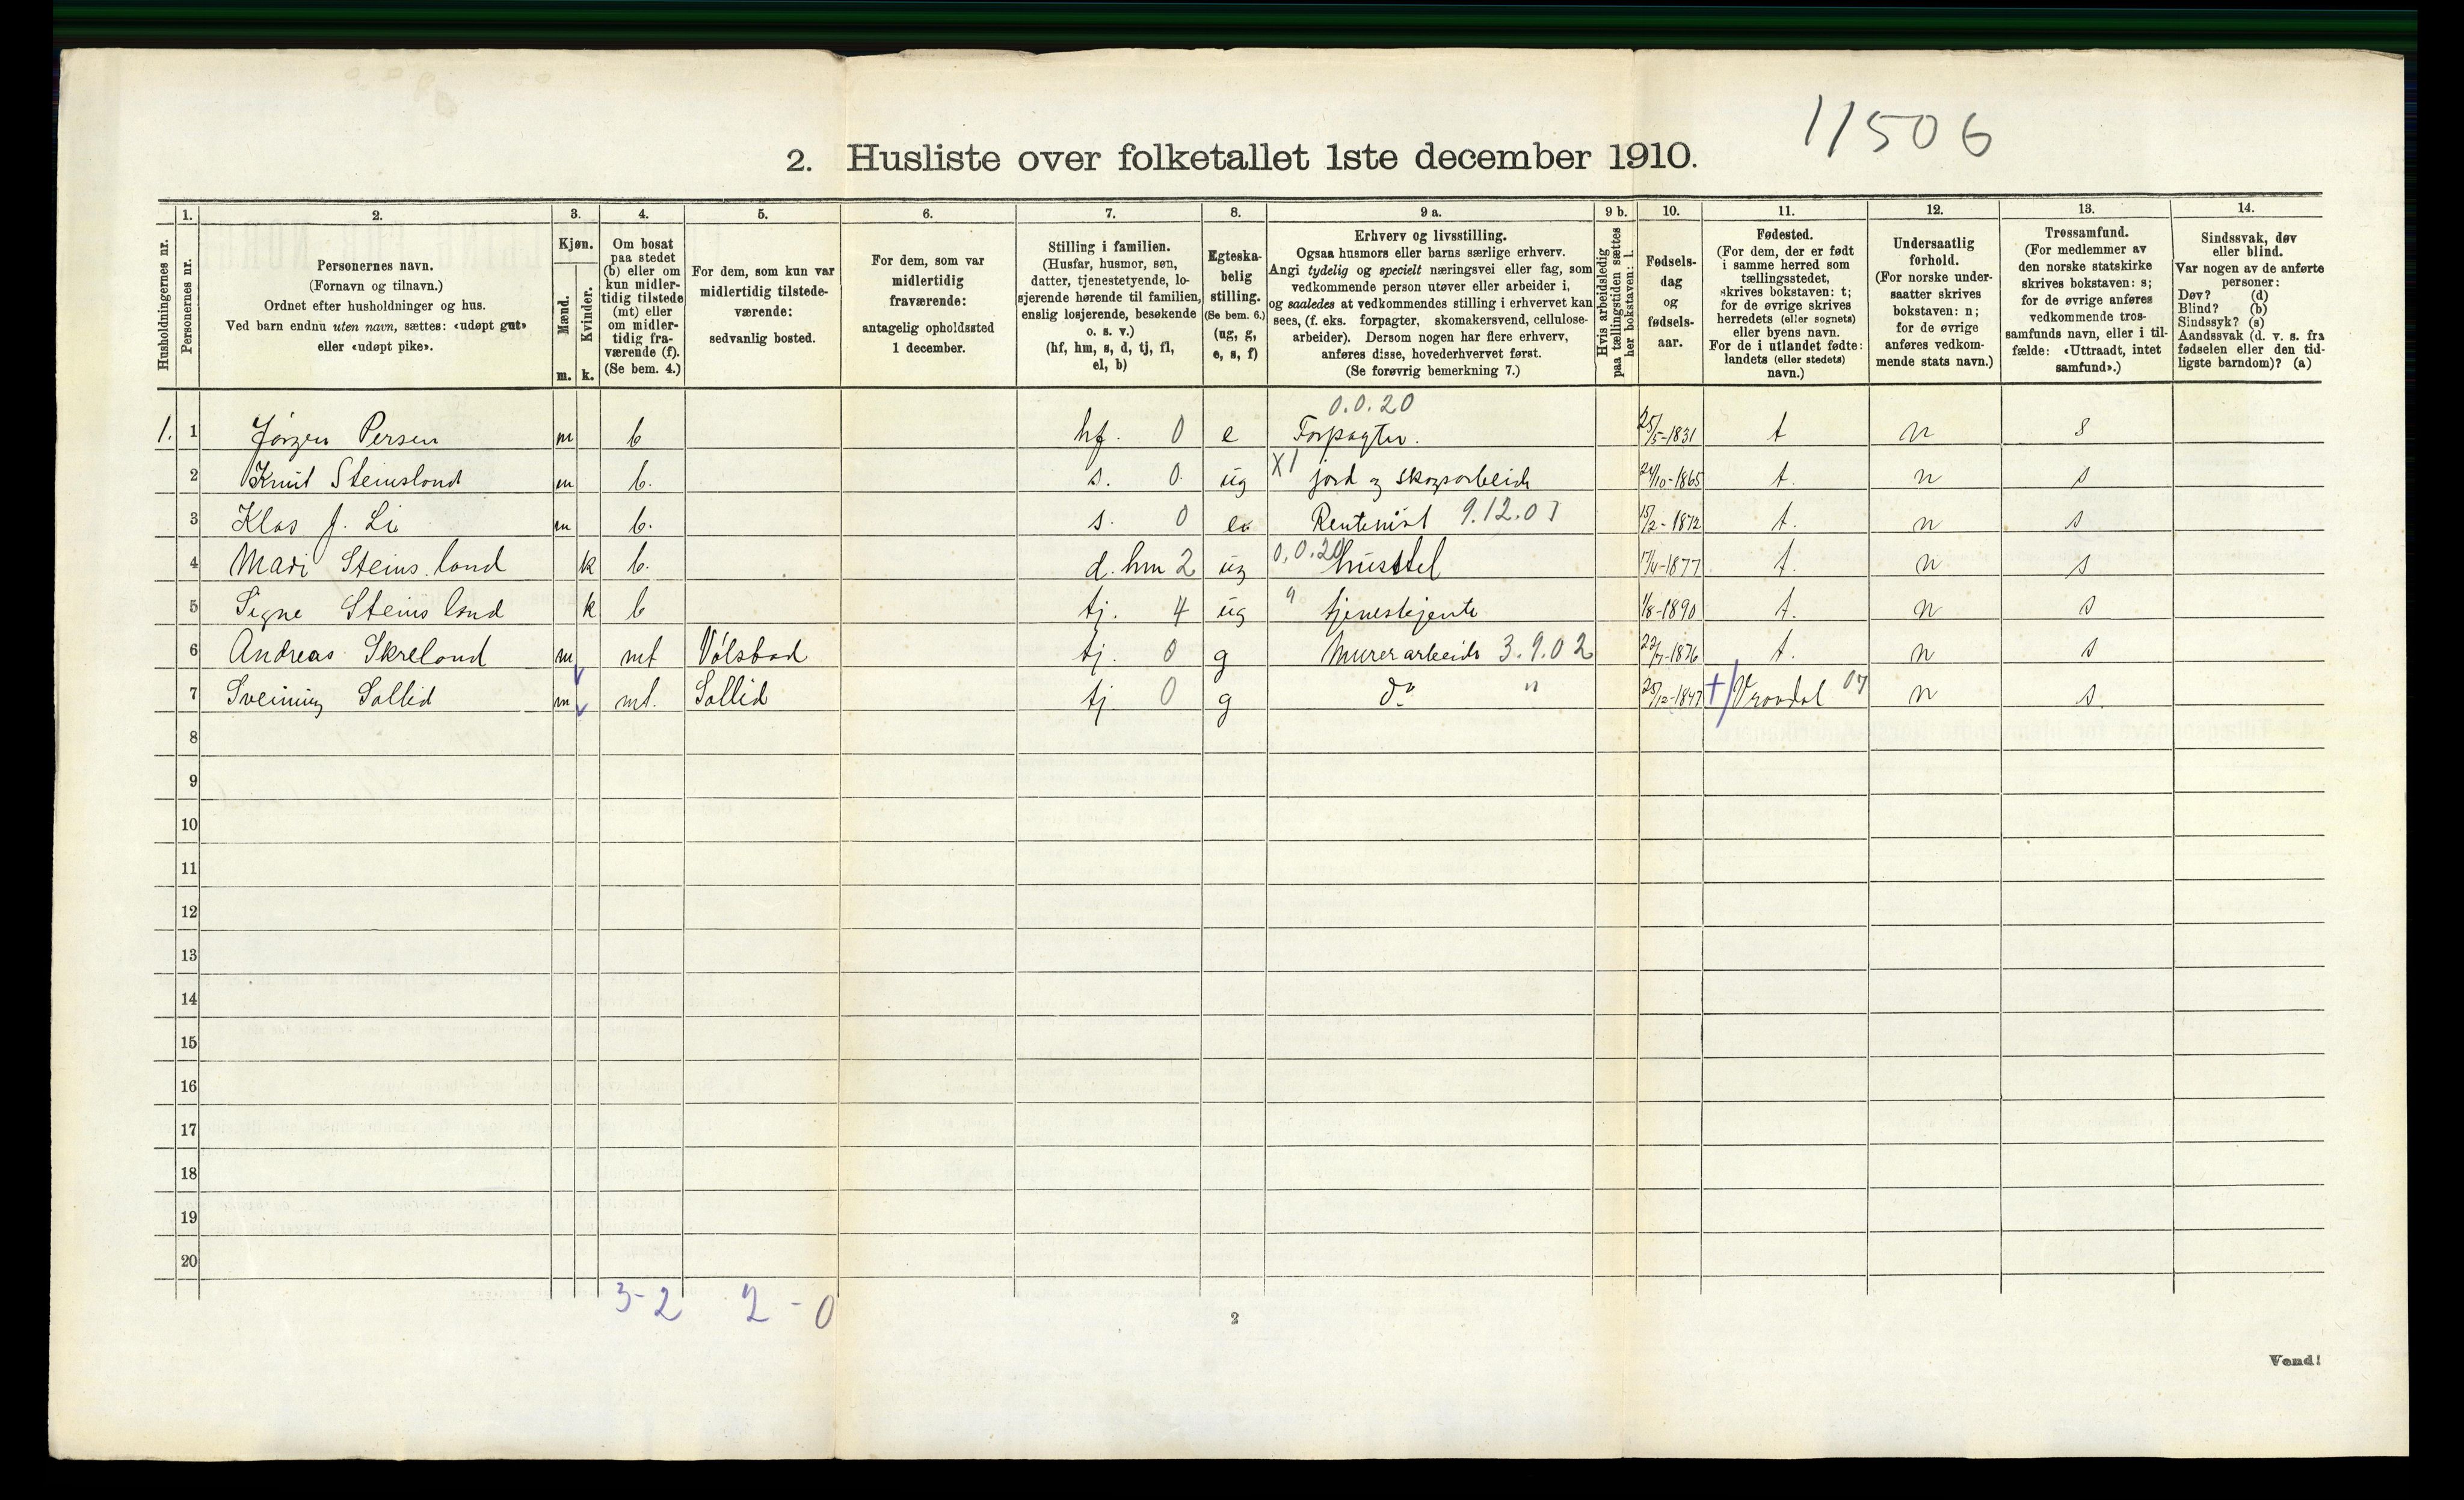 11506
2. Husliste over folketallet 1ste december 1910.
Husholdningernes nr.
1.
Personernes nr.
2.
Personernes navn.
(Fornavn og tilnavn.)
Ordnet efter husholdninger og hus.
Ved barn endnu uten navn, sættes: «udøpt gut»
eller «udøpt pike».
3.
Kjøn.
Mænd.
Kvinder.
m. k.
4.
Om bosat
paa stedet
(b) eller om
kun midler-
tidig tilstede
(mt) eller
om midler-
tidig fra-
værende (f).
(Se bem. 4.)
5.
For dem, som kun var
midlertidig tilstede-
værende:
sedvanlig bosted.
6.
For dem, som var
midlertidig
fraværende:
antagelig opholdssted
1 december.
7.
Stilling i familien.
(Husfar, husmor, søn,
datter, tjenestetyende, lo-
sjerende hørende til familien,
enslig losjerende, besøkende
o. s. v.)
(hf, hm, s, d, tj, fl,
el, b)
8.
Egteska-
belig
stilling.
(Se bem. 6.)
(ug, g,
e, s, f)
9 a.
Erhverv og livsstilling.
Ogsaa husmors eller barns særlige erhverv.
Angi tydelig og specielt næringsvei eller fag, som
vedkommende person utøver eller arbeider i,
og saaledes at vedkommendes stilling i erhvervet kan
sees, (f. eks. forpagter, skomakersvend, cellulose-
arbeider). Dersom nogen har flere erhverv,
anføres disse, hovederhvervet først.
(Se forøvrig bemerkning 7.)
9 b.
Hvis arbeidsledig
paa tællingstiden sættes
her bokstaven: l.
10.
Fødsels-
dag
og
fødsels-
aar.
11.
Fødested.
(For dem, der er født
i samme herred som
tællingsstedet,
skrives bokstaven: t;
for de øvrige skrives
herredets (eller sognets)
eller byens navn.
For de i utlandet fødte:
landets (eller stedets)
navn.)
12.
Undersaatlig
forhold.
(For norske under-
saatter skrives
bokstaven: n;
for de øvrige
anføres vedkom-
mende stats navn.)
13.
Trossamfund.
(For medlemmer av
den norske statskirke
skrives bokstaven: s;
for de øvrige anføres
vedkommende tros-
samfunds navn, eller i til-
fælde: «Uttraadt, intet
samfund».)
14.
Sindssvak, døv
eller blind.
Var nogen av de anførte
personer:
Døv? (d)
Blind? (b)
Sindssyk? (s)
Aandssvak (d. v. s. fra
fødselen eller den tid-
ligste barndom)? (a)
0.0.20
1. 1 Jørgen Persen m b hf. 0 e Forpagter. 25/5-1831 t n s
2 Knut Steinsland m b. s. 0 ug X1 jord og skogsarbeide 24/10-1865 t. n s
3 Klas J. Li m b. s. 0 e. Rentenist 9.12.07 15/2-1872 t. n s
4 Mari Steinsland k b. d. hm 2 ug 0.0.20 husstel 17/4-1877 t. n s
5 Signe Steinsland k b tj. 4 ug " tjenestejente 1/8-1890 t. n s
6 Andreas Skreland m mt Vølsbad tj. 0 g Murerarbeide 3.9.02 22/7-1876 t. n s
7 Sveinung Sollid m mt. Sollid tj 0 g do " 25/12-1847 Vraadal 07 n s.
8
9
10
11
12
13
14
15
16
17
18
19
20
3-2 2-0
2
Vend!